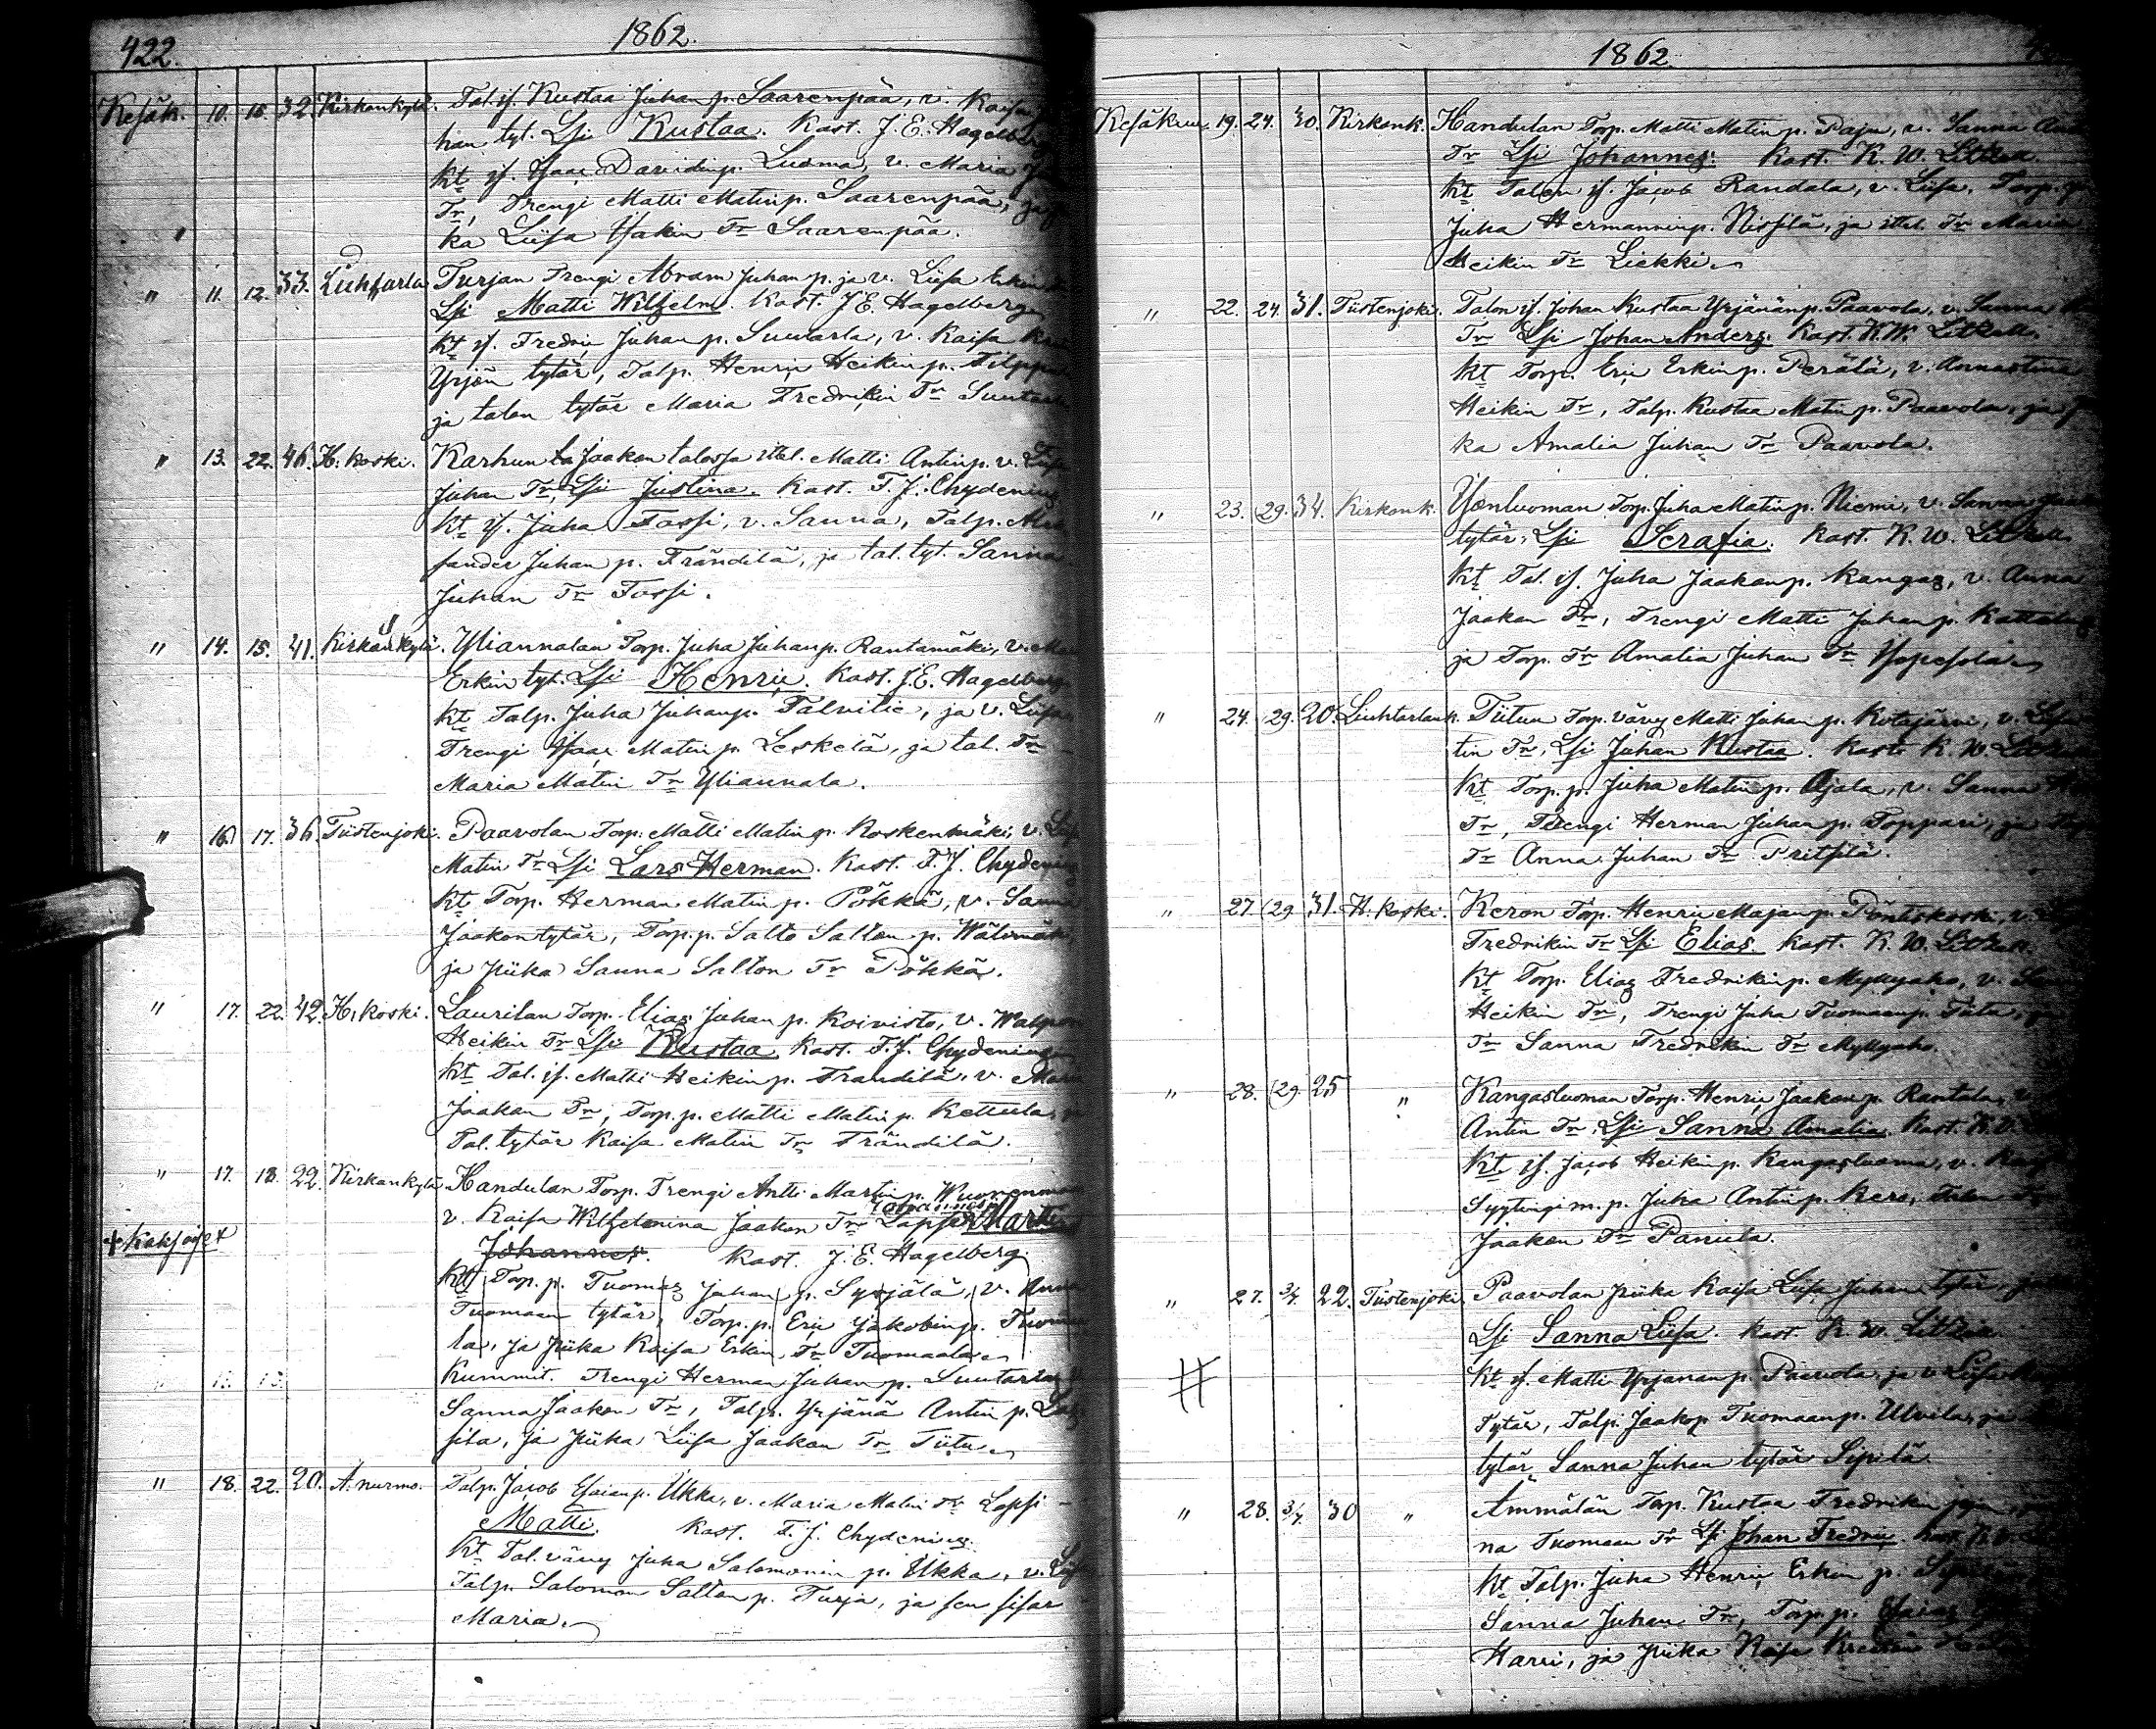 422.
1862.
Kesäk. 10. 15. 32. Kirkonkylä. Tal. is. Kustaa Juhan p. Saarenpää, v. Kaisa
han tyt. Lsi Kustaa. Kast. J. E. Hagelberg
Kt is. Isaac Davidin p. Luoma, v. Maria
Tr, Trengi Matti Matin p. Saarenpää, ja
ka Liisa Isakin Tr Saarenpää.
" 11. 12. 33. Luhtarla Turjan Trengi Abram Juhan p. ja v. Liisa Erkin
Lsi Matti Wilhelm. Kast. J. E. Hagelberg
Kt is. Fredric Juhan p. Suutarla, v. Kaisa
Yrjön tytär, Talp. Henric Heikin p. Filppu
ja talon tytär Maria Fredrikin Tr Suutarla
" 13. 22. 46. H. koski. Karhun ta Jaakon talossa itel. Matti Antin p. v. Liisa
Juhan Tr, Lsi Justina. Kast. F. J. Chydenius
Kt is. Juha Tassi, v. Sanna, Talp. Alek
sander Juhan p. Frändilä, ja tal. tyt. Sanna
Juhan Tr Tassi.
" 14. 15. 41. Kirkonkylä. Yliannalan Torp. Juha Juhan p. Rantamäki, v. Ma
Erkin tyt. Lsi Henric. Kast. J. E. Hagelberg
Kt Talp. Juha Juhan p. Palvitie, ja v. Liisa
Trengi Isaac Matin p. Leskelä, ja tal. Tr
Maria Matin Tr Yliannala.
" 16. 17. 36. Tiistenjoki. Paavolan Torp. Matti Matin p. Koskenmäki, v. Liisa
Matin Tr Lsi Lars Herman. Kast. F. J. Chydenius
Kt Torp. Herman Matin p. Pökkä, v. Sanna
Jaakon tytär, Torp. p. Salto Salton p. Wälimäki,
ja piika Sanna Salton Tr Pökkä.
" 17. 22. 42. H. koski. Laurilan Torp. Elias Juhan p. Koivisto, v. Walpuri
Heikin Tr Lsi Kustaa Kast. F. J. Chydenius
Kt Tal. is. Matti Heikin p. Frändilä, v. Maria
Jaakon Tr, Torp. p. Matti Matin p. Kettula,
Tal. tytär Kaisa Matin Tr Frändilä.
" 17. 18. 22. Kirkonkylä Handulan Torp. Trengi Antti Martin p. Wuorenmaa
v. Kaisa Wilhelmina Jaakon Tr Lapset Martti
+ Kaksoiset Johannes. Kast. J. E. Hagelberg
Kt Torp. p. Tuomas Juhan p. Syrjälä, v. Anna
Tuomaan tytär, Torp. p. Eric Jakobin p. Tuoma
la, ja piika Kaisa Erkin Tr Tuomaala
Kummit. Trengi Herman Juhan p. Luutarla,
Sanna Jaakon Tr, Talp. Yrjänä Antin p. Las
sila, ja piika Liisa Jaakon Tr Tiitu
" 18. 22. 20. A. nurmo. Talp. Jacob Esaian p. Ukka, v. Maria Matin Tr Lapsi
Matti. Kast. F. J. Chydenius.
Kt Tal. vävy Juha Salomonin p. Ukka, v. Liisa
Talp. Salomon Salton p. Turja, ja sen sisar
Maria.
1862.
Kesäkuu 19. 24. 30. Kirkonk. Handulan Torp. Matti Matin p. Paju, v. Sanna
Tr Lsi Johannes. Kast. K. W. Litzen.
Kt Talon is. Jacob Randala, v. Liisa, Torp.
Juha Hermannin p. Nissilä, ja ittel. Tr Maria
Heikin Tr Liekki
" 22. 24. 31. Tiistenjoki. Talon is. Johan Kustaa Yrjänän p. Paavola, v. Sanna
Tr Lsi Johan Anders. Kast. K. W. Litzen.
Kt Torp. Eric Erkin p. Perälä, v. Annastina
Heikin Tr, Talp. Kustaa Matin p. Paavola, ja
ka Amalia Juhan Tr Paavola.
" 23. 29. 34. Kirkonk. Isonluoman Torp. Juha Matin p. Niemi, v. Sanna
tytär, Lsi Serafia. Kast. K. W. Litzen
Kt Tal. is. Juha Jaakon p. Kangas, v. Anna
Jaakon Tr, Trengi Matti Juhan p. Kattelus
ja Torp. Tr Amalia Juhan Tr Isopesola
" 24. 29. 20. Luhtarlank. Tiitun Torp. vävy Matti Juhan p. Kotajärvi, v. Liisa
tin Tr, Lsi Juhan Kustaa. Kast. K. W. Litzen
Kt Torp. p. Juha Matin p. Ojala, v. Sanna
Tr, Trengi Herman Juhan p. Toppari, ja
Tr Anna Juhan Tr Pritsilä.
" 27. 29. 31. H. koski. Keron Torp. Henric Majan p. Pöntiskoski, v.
Fredrikin Tr Lsi Elias. Kast. K. W. Litzen
Kt Torp. Elias Fredrikin p. Myllyaho, v.
Heikin Tr, Trengi Juha Tuomaan p. Tiitu, ja
Tr Sanna Fredrikin Tr Myllyaho.
" 28. 29. 25 " Kangasluoman Torp. Henric Jaakon p. Rantala,
Antin Tr, Lsi Sanna Amalia. Kast. K. W.
Kt is. Jacob Heikin p. Kangasluoma, v.
Syytingi m. p. Juha Antin p. Kero,
Jaakon Tr Panula.
" 27. 3/7. 22. Tiistenjoki. Paavolan piika Kaisa Liisa Juhan tytär,
Lsi Sanna Liisa. Kast. K. W. Litzen
Kt is. Matti Yrjänän p. Paavola, ja v. Liisa
Tytär, Talp. Jaakop Tuomaan p. Ulvila, ja
tytär Sanna Juhan tytär Sipilä
" 28. 3/7. 30 " Ämmälän Torp. Kustaa Fredrikin p.
na Tuomaan Tr Lsi Johan Fredric. Kast. K. W.
Kt Talp. Juha Henric Erkin p.
Sanna Juhan Tr, Torp. p. Esaias
Harri, ja piika Kaisa